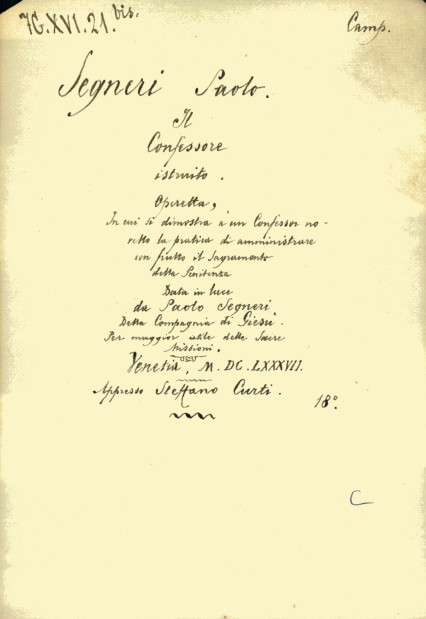 7G.XVI.21.bis.
Camp.
Segneri Paolo.
Il
Confessore
istruito.
Operetta,
In cui si dimostra a un Confessor no-
vello la pratica di amministrare
con frutto il Sagramento
della Penitenza
Data in luce
da Paolo Segneri
Della Compagnia di Giesù.
Per maggior utile delle Sacre
Missioni.
Venetia, M.DC.LXXXVII.
Appresso Steffano Curti.
18°.
C